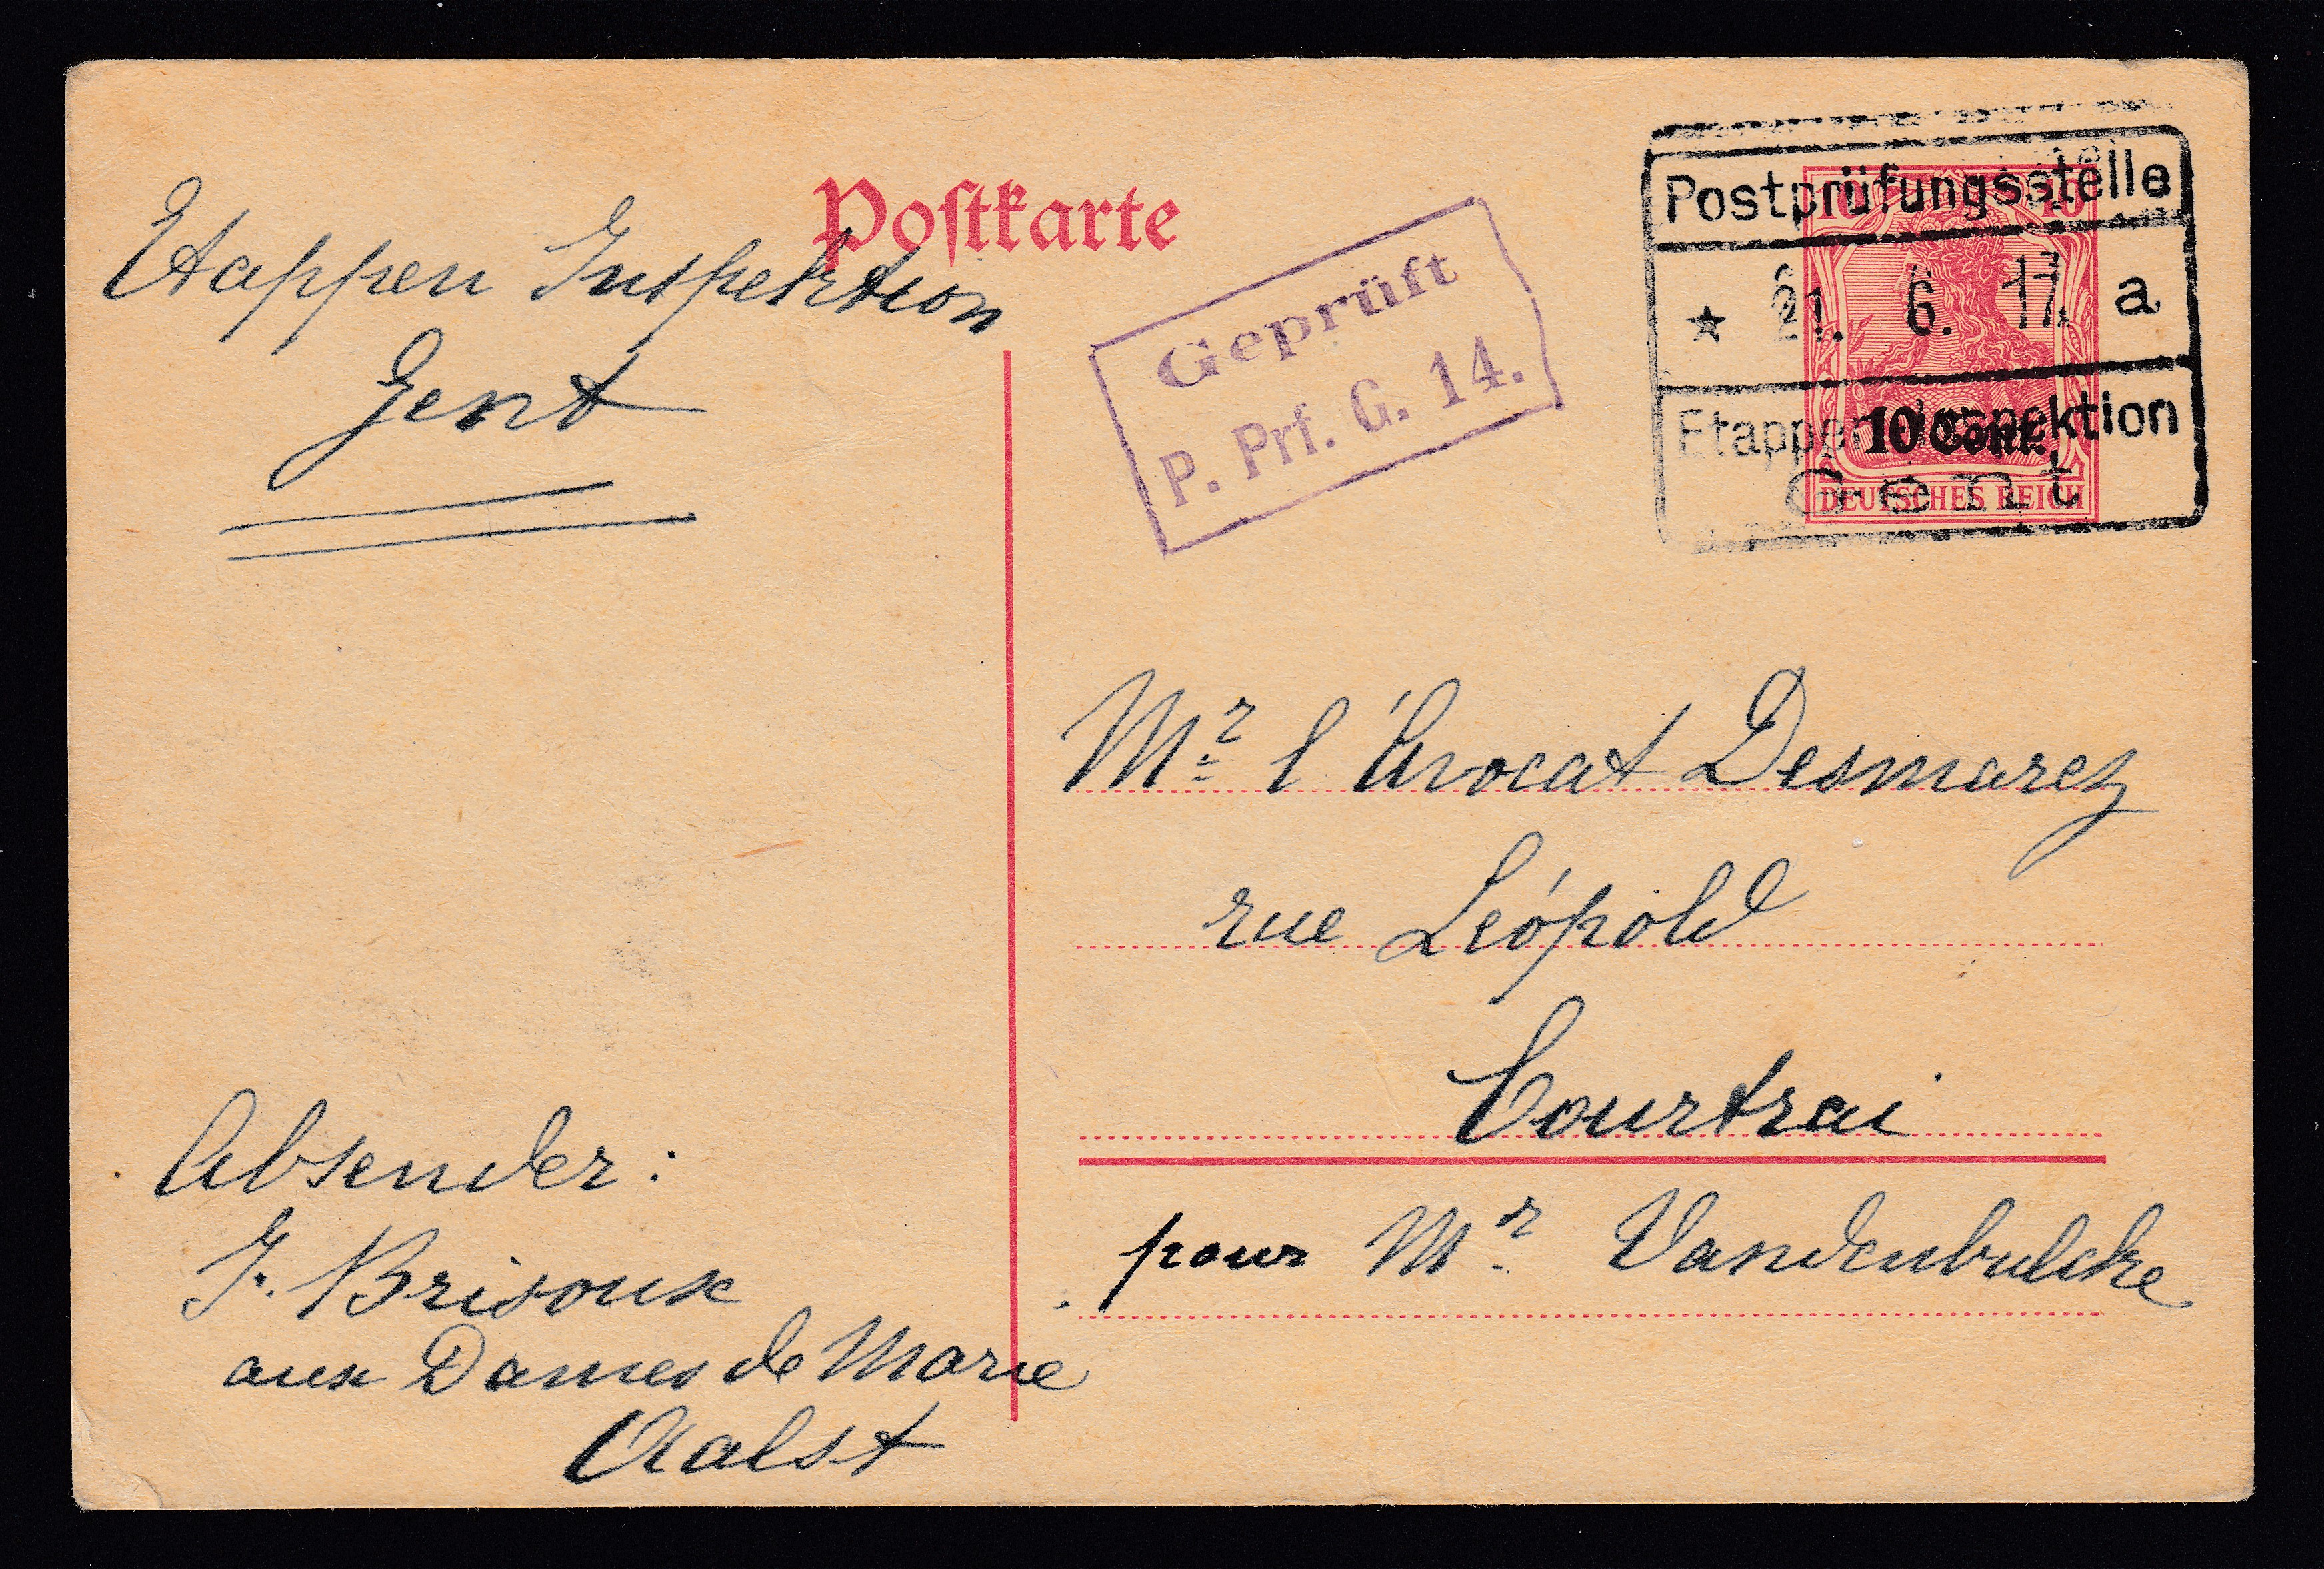 Postkarte
Etappen Inspektion
Gent
Geprüft
P. Prf. G. 14.
Postprüfungsstelle
* 21. 6. 17 a
Etappen-Inspektion
Gent
10 10
10 Cent.
DEUTSCHES REICH
Mr. l'Avocat Desmarez
rue Léopold
Courtrai
pour Mr. Vandenbulcke
Absender:
J. Brisoux
aux Dames de Marie
Aalst